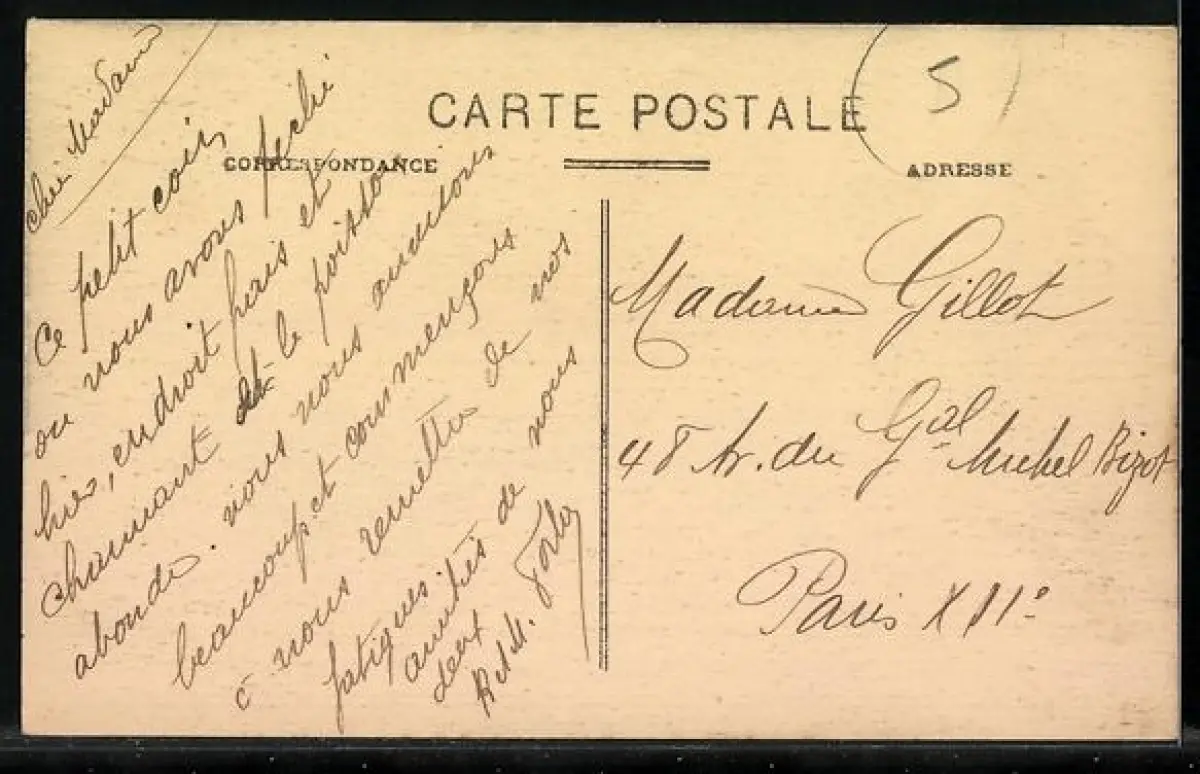 CARTE POSTALE
CORRESPONDANCE
ADRESSE
5
Chère Madame
Ce petit coin
ou nous avons pêché
hier, endroit frais et
charmant et le poisson
abonde. nous nous amusons
beaucoup et commençons
à nous remettre de nos
fatigues
amitiés de nous
deux
R et M.
Madame Gillot
48 Av. du Gal Michel Bizot
Paris XIIe